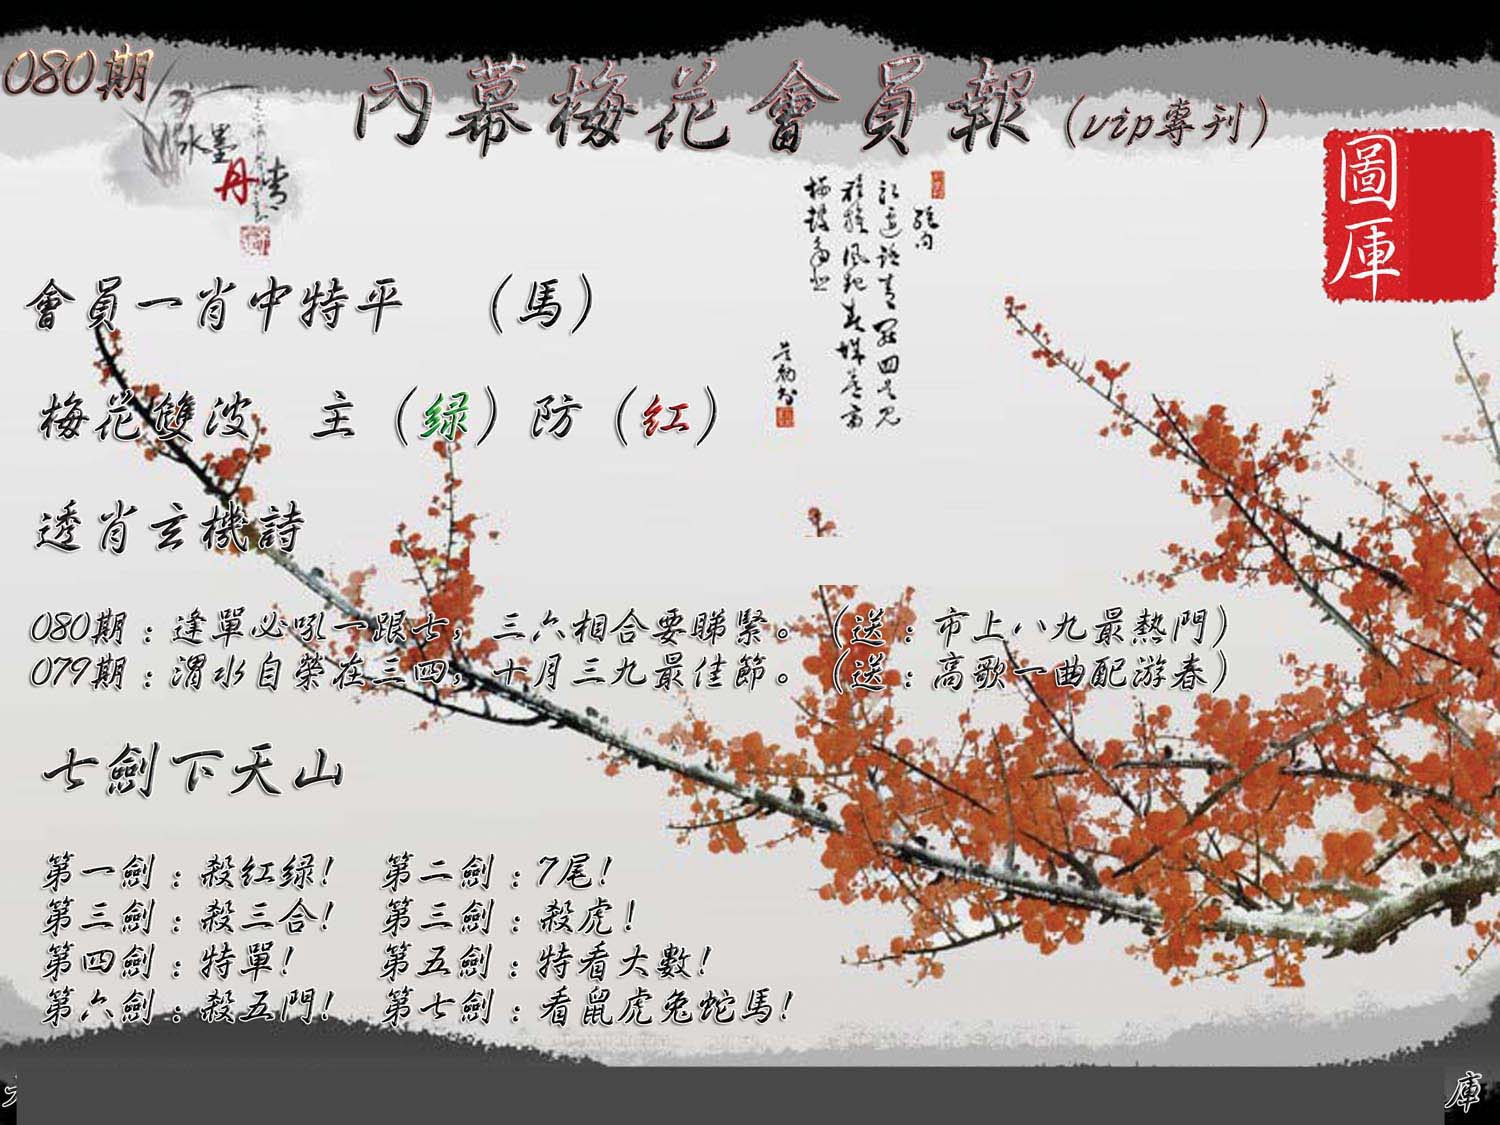 080期
內幕梅花會員報（vip專刊）
水墨
丹青
圖庫
會員一肖中特平　（馬）
梅花雙波　主（绿）防（红）
透肖玄機詩
080期：逢單必吼一跟七，三六相合要睇緊。（送：市上八九最熱門）
079期：渭水自榮在三四，十月三九最佳節。（送：高歌一曲配游春）
七劍下天山
第一劍：殺红绿！　第二劍：7尾！
第三劍：殺三合！　第三劍：殺虎！
第四劍：特單！　第五劍：特看大數！
第六劍：殺五門！　第七劍：看鼠虎兔蛇馬！
庫